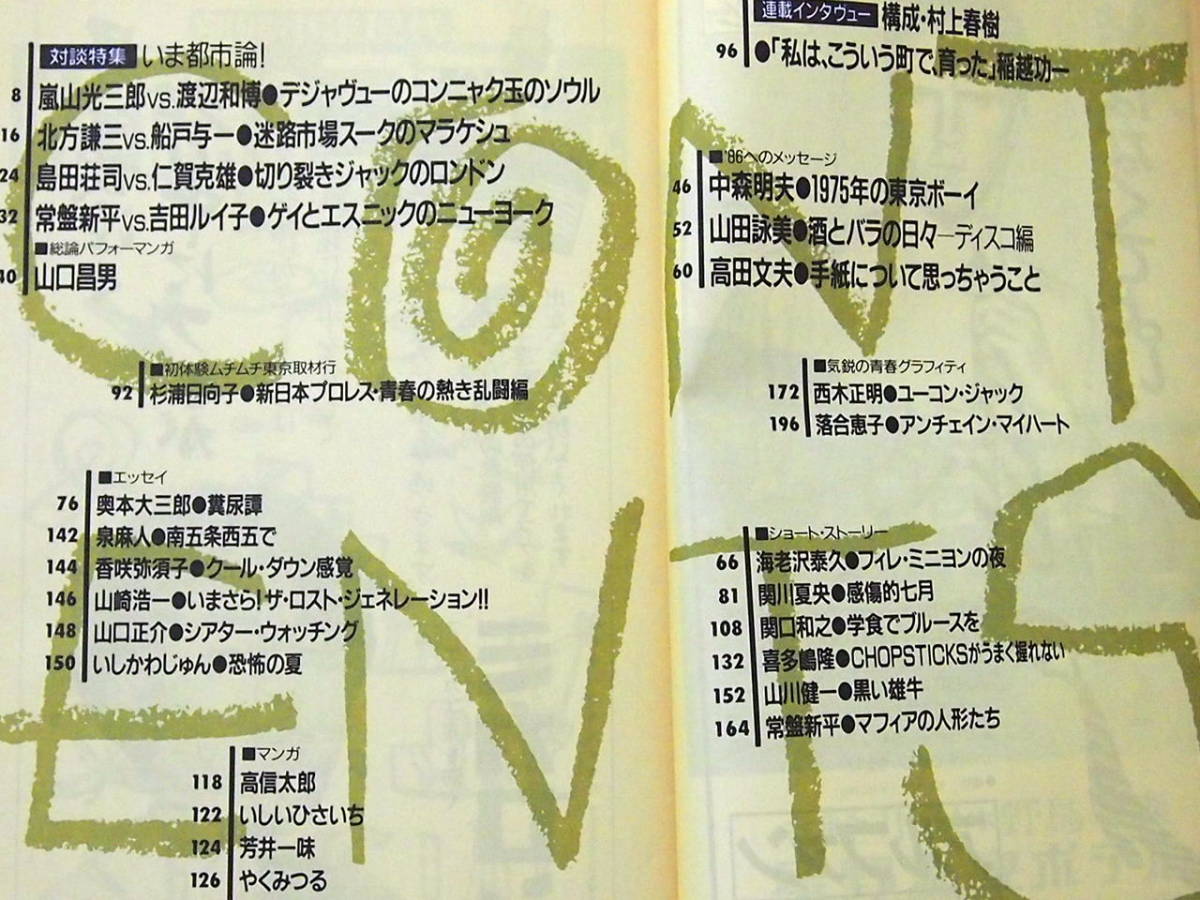 対談特集 いま都市論!
8 嵐山光三郎vs.渡辺和博●デジャヴューのコンニャク玉のソウル
16 北方謙三vs.船戸与一●迷路市場スークのマラケシュ
24 島田荘司vs.仁賀克雄●切り裂きジャックのロンドン
32 常盤新平vs.吉田ルイ子●ゲイとエスニックのニューヨーク
■総論パフォーマンガ
40 山口昌男
■初体験ムチムチ東京取材行
92 杉浦日向子●新日本プロレス・青春の熱き乱闘編
■エッセイ
76 奥本大三郎●糞尿譚
142 泉麻人●南五条西五で
144 香咲弥須子●クール・ダウン感覚
146 山崎浩一●いまさら!ザ・ロスト・ジェネレーション!!
148 山口正介●シアター・ウォッチング
150 いしかわじゅん●恐怖の夏
■マンガ
118 高信太郎
122 いしいひさいち
124 芳井一味
126 やくみつる
連載インタヴュー 構成・村上春樹
96 ●「私は、こういう町で、育った」稲越功一
■'86へのメッセージ
46 中森明夫●1975年の東京ボーイ
52 山田詠美●酒とバラの日々―ディスコ編
60 高田文夫●手紙について思っちゃうこと
■気鋭の青春グラフィティ
172 西木正明●ユーコン・ジャック
196 落合恵子●アンチェイン・マイハート
■ショート・ストーリー
66 海老沢泰久●フィレ・ミニヨンの夜
81 関川夏央●感傷的七月
108 関口和之●学食でブルースを
132 喜多嶋隆●CHOPSTICKSがうまく握れない
152 山川健一●黒い雄牛
164 常盤新平●マフィアの人形たち
CONT
ENTS